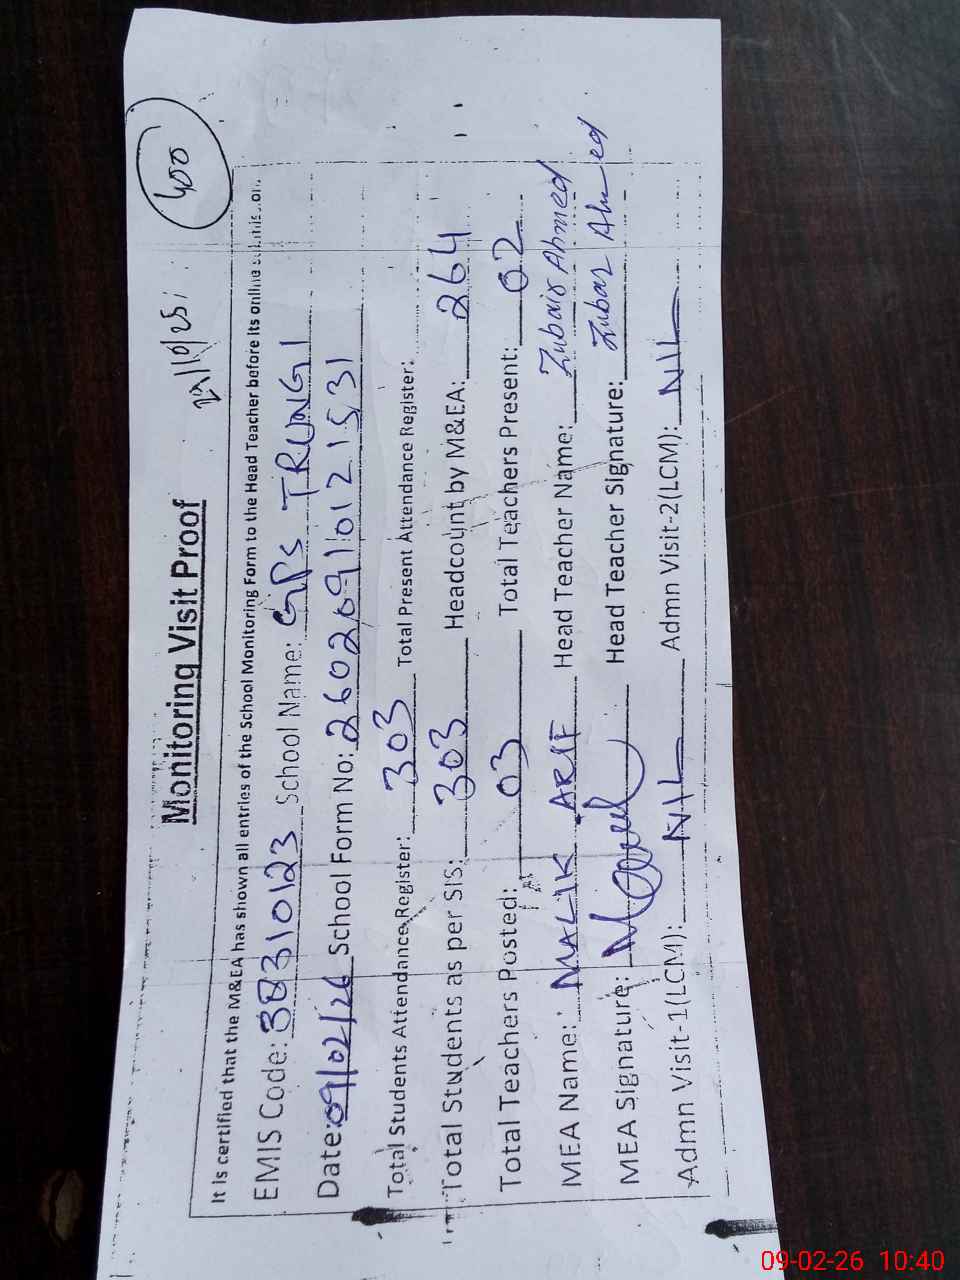 400
29/10/25
Monitoring Visit Proof
It is certified that the M&EA has shown all entries of the School Monitoring Form to the Head Teacher before its online
EMIS Code: 38310123 School Name: GPS TRUNGI
Date: 09/02/26 School Form No: 26020910121531
Total Students Attendance Register: 303 Total Present Attendance Register:
Total Students as per SIS: 303 Headcount by M&EA: 264
Total Teachers Posted: 03 Total Teachers Present: 02
MEA Name: MALIK ARIF Head Teacher Name: Zubair Ahmed
MEA Signature: Head Teacher Signature: Zubar Ahmed
Admn Visit-1(LCM): NIL Admn Visit-2(LCM): NIL
09-02-26 10:40